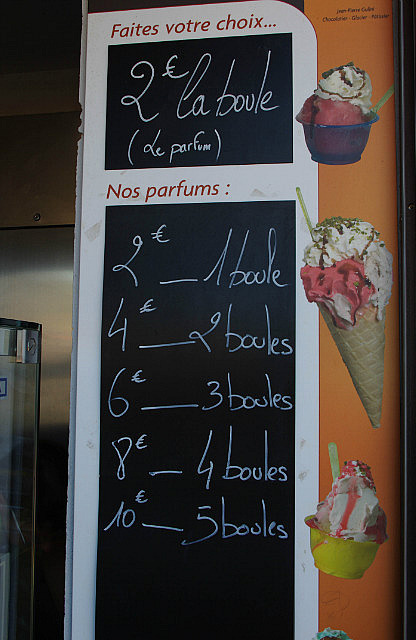 Faites votre choix...
Jean-Pierre Gulini
Chocolatier - Glacier - Pâtissier
2€ la boule
(le parfum)
Nos parfums :
2€ — 1 boule
4€ — 2 boules
6€ — 3 boules
8€ — 4 boules
10€ — 5 boules